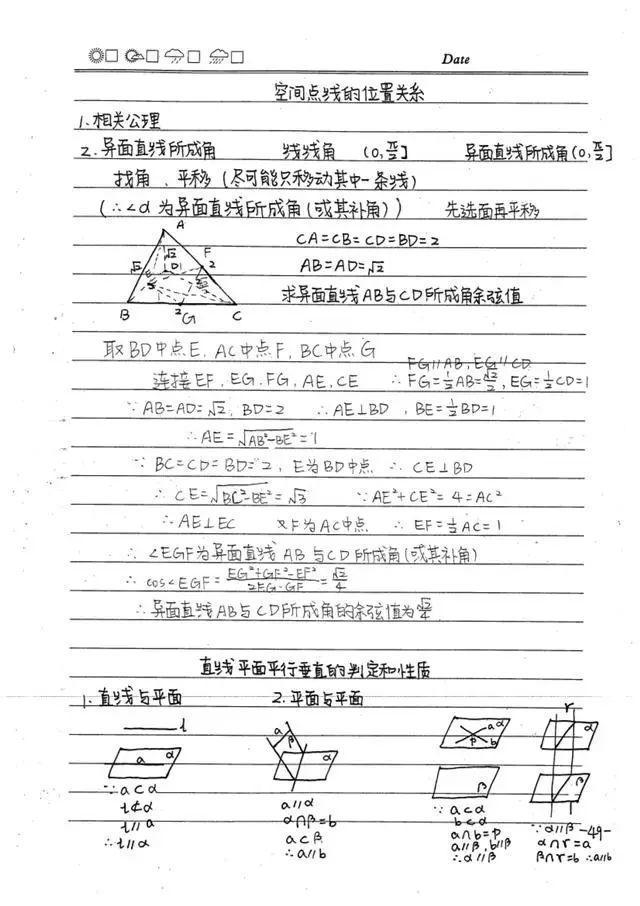 Date
空间点线的位置关系
1.相关公理
2.异面直线所成角 线线角 (0,π/2] 异面直线所成角(0,π/2]
找角、平移(尽可能只移动其中一条线)
(∴∠α为异面直线所成角(或其补角)) 先选面再平移
A
CA=CB=CD=BD=2
F
√2 √2 D 2
AB=AD=√2
求异面直线AB与CD所成角余弦值
B 2 G C
取BD中点E,AC中点F,BC中点G
FG∥AB,EG∥CD
连接EF,EG.FG,AE,CE ∴FG=½AB=√2/2,EG=½CD=1
∵AB=AD=√2,BD=2 ∴AE⊥BD,BE=½BD=1
∴AE=√(AB²-BE²)=1
∵BC=CD=BD=2,E为BD中点 ∴CE⊥BD
∴CE=√(BC²-BE²)=√3 ∵AE²+CE²=4=AC²
∴AE⊥EC 又F为AC中点 ∴EF=½AC=1
∴∠EGF为异面直线AB与CD所成角(或其补角)
∴cos∠EGF=(EG²+GF²-EF²)/(2EG·GF)=√2/4
∴异面直线AB与CD所成角的余弦值为√2/4
直线平面平行垂直的判定和性质
1.直线与平面 2.平面与平面
l
a α
∵a⊂α
l⊄α
l∥a
∴l∥α
a β α
a∥α
α∩β=b
a⊂β
∴a∥b
a α
P b
β
∵a⊂α
b⊂α
a∩b=P
a∥β,b∥β
∴α∥β
r
α
β
∵α∥β
α∩r=a
β∩r=b ∴a∥b
-49-